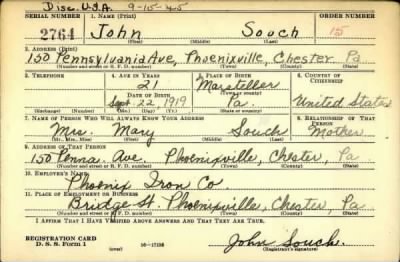 Disc. U.S.A. 9-15-45
SERIAL NUMBER 1. NAME (Print) ORDER NUMBER
2764 John Souch 15
(First) (Middle) (Last)
2. ADDRESS (Print)
150 Pennsylvania Ave, Phoenixville, Chester, Pa
(Number and street or R. F. D. number) (Town) (County) (State)
3. TELEPHONE 4. AGE IN YEARS 5. PLACE OF BIRTH 6. COUNTRY OF CITIZENSHIP
21 Marsteller
DATE OF BIRTH (Town or county)
Sept. 22, 1919 Pa. United States
(Exchange) (Number) (Mo.) (Day) (Yr.) (State or country)
7. NAME OF PERSON WHO WILL ALWAYS KNOW YOUR ADDRESS 8. RELATIONSHIP OF THAT PERSON
Mrs. Mary Souch Mother
(Mr., Mrs., Miss) (First) (Middle) (Last)
9. ADDRESS OF THAT PERSON
150 Penna. Ave. Phoenixville, Chester, Pa
(Number and street or R. F. D. number) (Town) (County) (State)
10. EMPLOYER'S NAME
Phoenix Iron Co.
11. PLACE OF EMPLOYMENT OR BUSINESS
Bridge St. Phoenixville, Chester, Pa.
(Number and street or R. F. D. number) (Town) (County) (State)
I AFFIRM THAT I HAVE VERIFIED ABOVE ANSWERS AND THAT THEY ARE TRUE.
REGISTRATION CARD
D. S. S. Form 1 (over) 16-17105 John Souch.